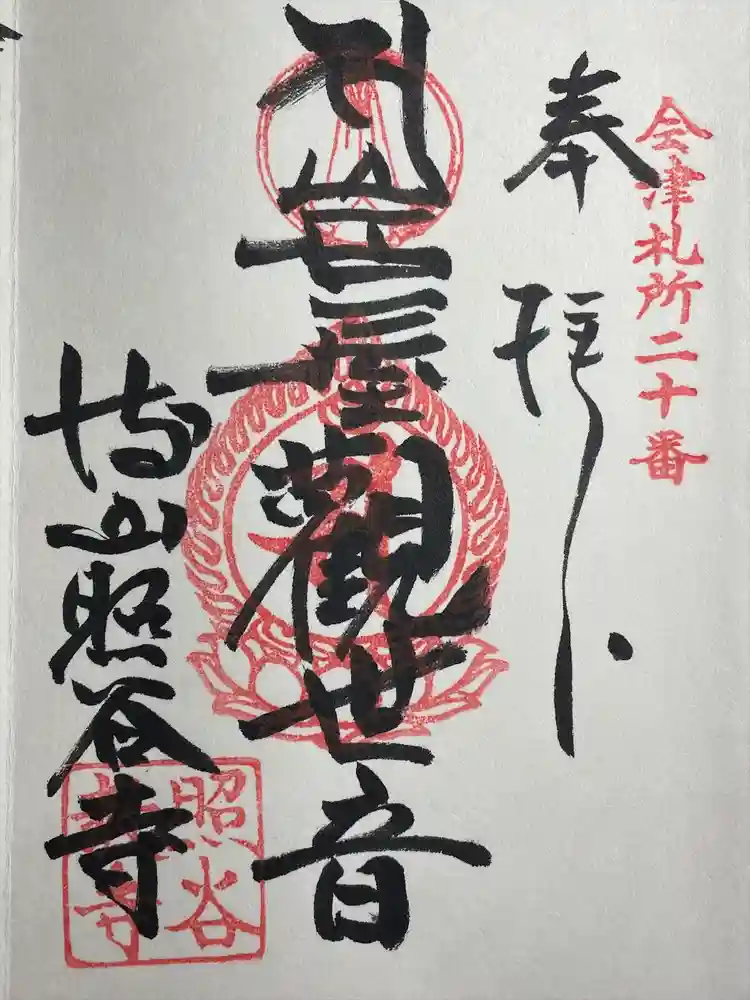 会津札所二十番
奉拝
屋觀世音
山照谷寺
照谷
寺